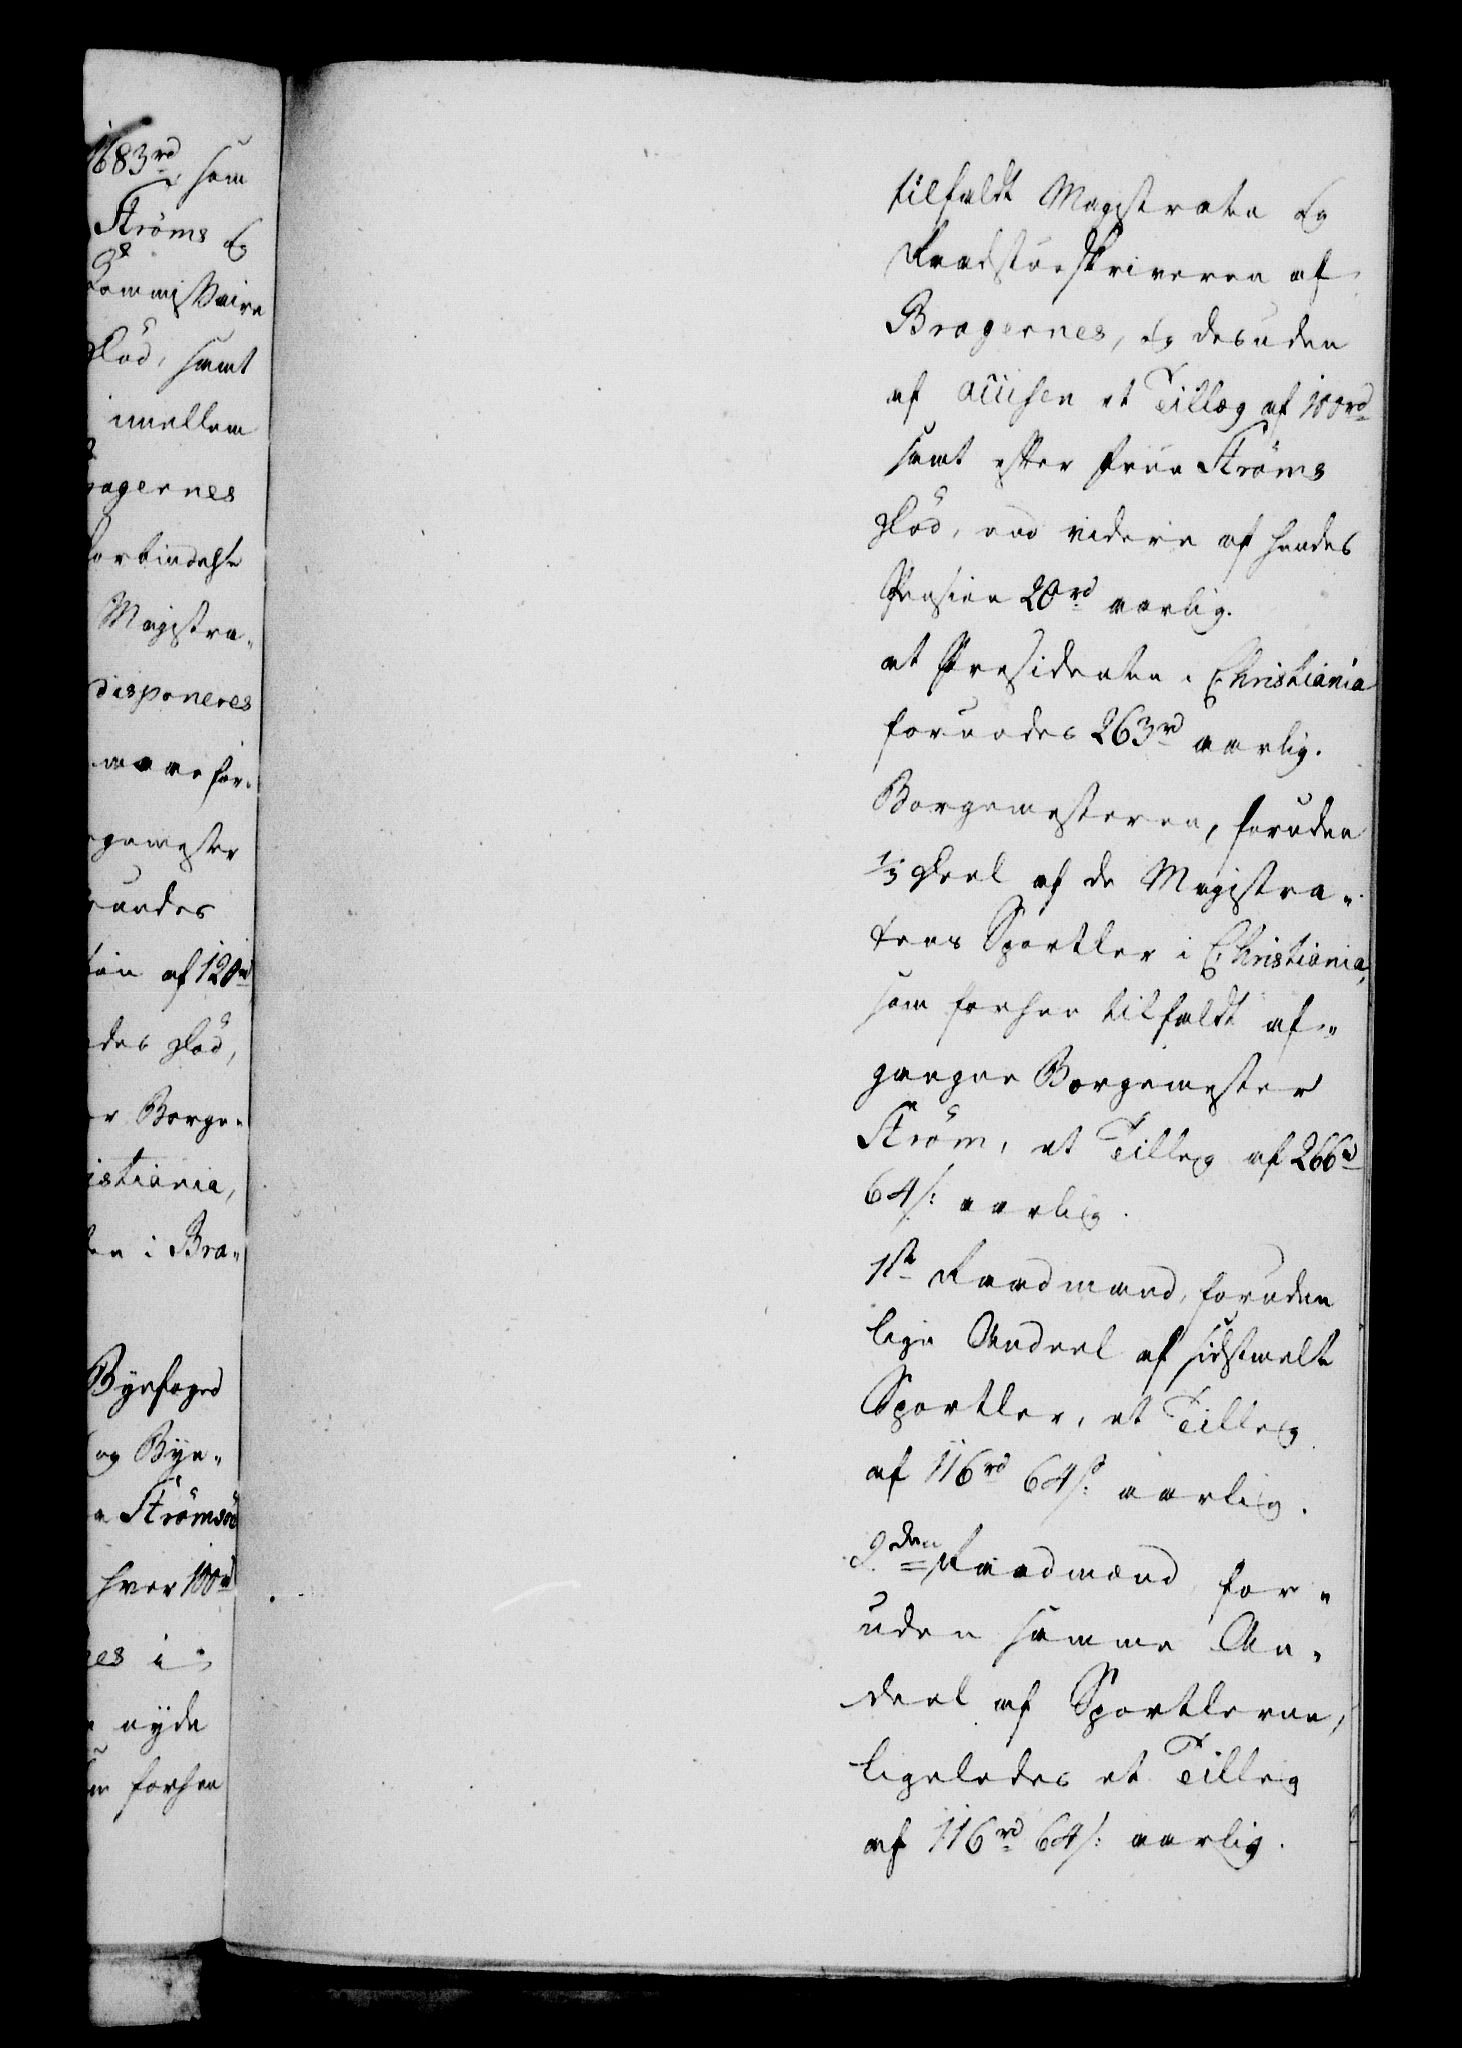 1683rd, som
Strøms og
Commissaire
Død, samt
imellem
ragernes
Forbindelse
Magistra-
disponeres
maae for-
rgemester
af 120rd
des Død,
r Borge-
istiania,
en i Bra-
Byefoged
og Bye-
Strømsøe
hver 100rd
nes i
nyde
forhen
tilfaldt Magistraten og
Raadstueskriveren af
Bragernes, og desuden
af accisen et Tillæg af 100rd
samt efter Frue Strøms
Død, end videre af hendes
Pension 20rd aarlig.
at Presidenten i Christiania
forundes 263rd aarlig.
Borgemesteren, foruden
1/3 Deel af de Magistra-
tens Sportler i Christiania,
som forhen tilfaldt af-
gangne Borgemester
Strøm, et Tilleg af 266rd
64 s: aarlig.
1ste Raadmand, foruden
lige Andeel af sidstmelte
Sportler, et Tilleg
af 116rd 64 s: aarlig.
2den Raadmand, for-
uden samme An-
deel af Sportlerne,
ligeledes et Tilleg
af 116rd 64 s: aarlig.